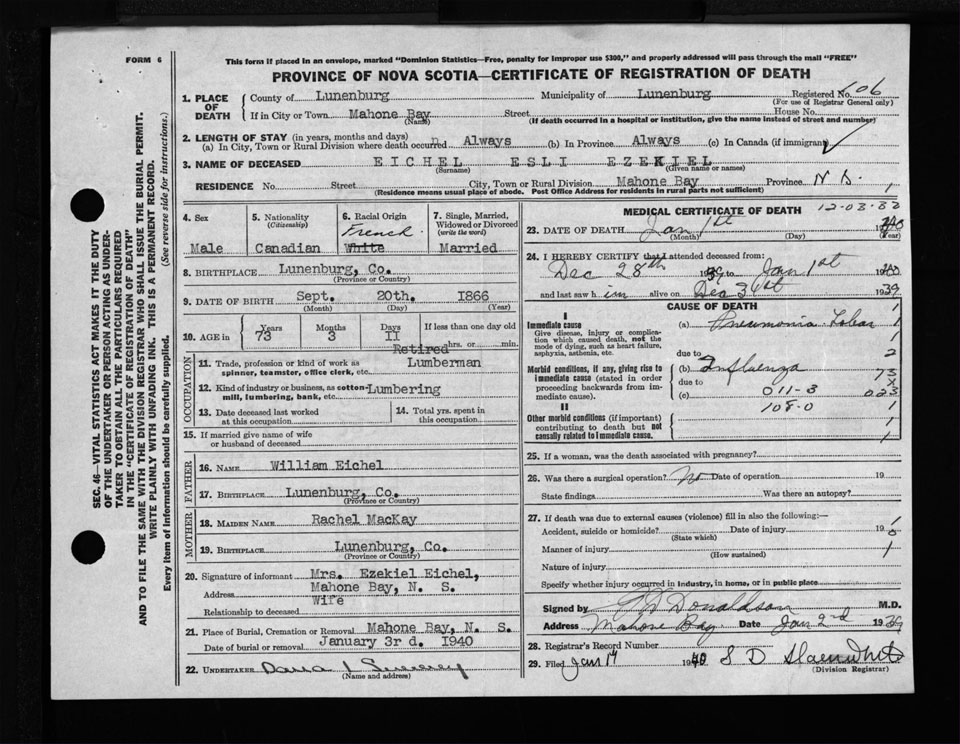 FORM 6
This form if placed in an envelope, marked "Dominion Statistics—Free, penalty for improper use $300," and properly addressed will pass through the mail "FREE"
PROVINCE OF NOVA SCOTIA—CERTIFICATE OF REGISTRATION OF DEATH
SEC. 46—VITAL STATISTICS ACT MAKES IT THE DUTY
OF THE UNDERTAKER OR PERSON ACTING AS UNDER-
TAKER TO OBTAIN ALL THE PARTICULARS REQUIRED
IN THE "CERTIFICATE OF REGISTRATION OF DEATH"
AND TO FILE THE SAME WITH THE DIVISION REGISTRAR WHO SHALL ISSUE THE BURIAL PERMIT.
WRITE PLAINLY WITH UNFADING INK. THIS IS A PERMANENT RECORD.
Every item of information should be carefully supplied. (See reverse side for instructions.)
1. PLACE OF DEATH
County of Lunenburg Municipality of Lunenburg Registered No. 606
(For use of Registrar General only)
If in City or Town Mahone Bay Street House No.
(Name) (If death occurred in a hospital or institution, give the name instead of street and number)
2. LENGTH OF STAY (in years, months and days)
(a) In City, Town or Rural Division where death occurred Always (b) In Province Always (c) In Canada (if immigrant)
3. NAME OF DECEASED EICHEL ESLI EZEKIEL
(Surname) (Given name or names)
RESIDENCE No. Street City, Town or Rural Division Mahone Bay Province N S. 1
(Residence means usual place of abode. Post Office Address for residents in rural parts not sufficient)
4. Sex
Male
5. Nationality
(Citizenship)
Canadian
6. Racial Origin
French
White
7. Single, Married,
Widowed or Divorced
(write the word)
Married
8. BIRTHPLACE Lunenburg, Co.
(Province or Country)
9. DATE OF BIRTH Sept. 20th. 1866
(Month) (Day) (Year)
10. AGE in Years Months Days If less than one day old
73 3 II hrs. or min.
OCCUPATION
11. Trade, profession or kind of work as Retired Lumberman
spinner, teamster, office clerk, etc.
12. Kind of industry or business, as cotton- Lumbering
mill, lumbering, bank, etc.
13. Date deceased last worked
at this occupation
14. Total yrs. spent in
this occupation
15. If married give name of wife
or husband of deceased
FATHER
16. NAME William Eichel
17. BIRTHPLACE Lunenburg, Co.
(Province or Country)
MOTHER
18. MAIDEN NAME Rachel MacKay
19. BIRTHPLACE Lunenburg, Co.
(Province or Country)
20. Signature of informant Mrs. Ezekiel Eichel,
Address Mahone Bay, N. S.
Relationship to deceased Wife
21. Place of Burial, Cremation or Removal Mahone Bay, N. S.
Date of burial or removal January 3r d. 1940
22. UNDERTAKER
(Name and address)
MEDICAL CERTIFICATE OF DEATH 12-03-33
23. DATE OF DEATH Jan 1st 1940
(Month) (Day) (Year)
24. I HEREBY CERTIFY that I attended deceased from:
Dec 28th 1939 to Jan 1st 1940
and last saw him alive on Dec 31st 1939
CAUSE OF DEATH
I
Immediate cause
Give disease, injury or complica-
tion which caused death, not the
mode of dying, such as heart failure,
asphyxia, asthenia, etc.
(a) Pneumonia Lobar 1
1
due to 2
Morbid conditions, if any, giving rise to
immediate cause (stated in order
proceeding backwards from im-
mediate cause).
(b) Influenza 73
due to
(c) 011-3 023
II 108-0 1
Other morbid conditions (if important)
contributing to death but not
causally related to immediate cause.
1
1
25. If a woman, was the death associated with pregnancy?
26. Was there a surgical operation? No Date of operation 19
State findings Was there an autopsy?
27. If death was due to external causes (violence) fill in also the following:—
Accident, suicide or homicide? Date of injury 19
(State which)
Manner of injury 1
(How sustained)
Nature of injury
Specify whether injury occurred in industry, in home, or in public place
Signed by Donaldson M.D.
Address Mahone Bay Date Jan 2nd 1939
28. Registrar's Record Number
29. Filed Jan 1940 S D
(Division Registrar)